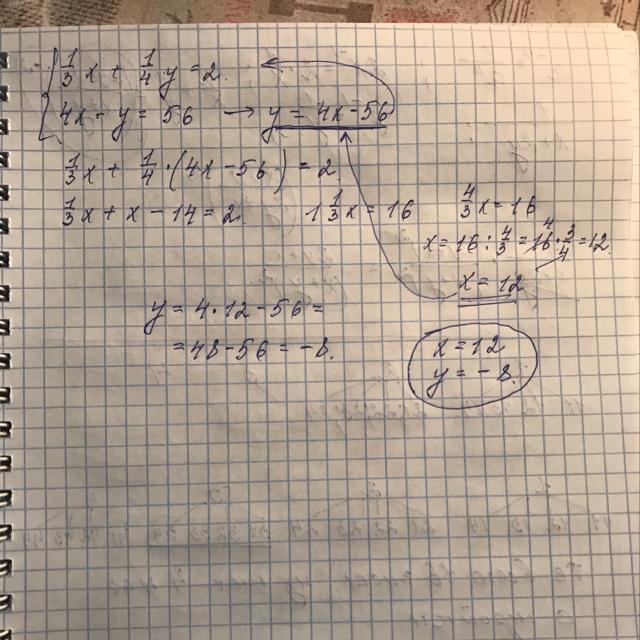 1/3 x + 1/4 y = 2.
4x - y = 56 → y = 4x - 56
1/3 x + 1/4 · (4x - 56) = 2.
1/3 x + x - 14 = 2. 1 1/3 x = 16 4/3 x = 16
x = 16 : 4/3 = 16 4 · 3/4 = 12.
x = 12
y = 4 · 12 - 56 =
= 48 - 56 = - 8.
x = 12
y = - 8.